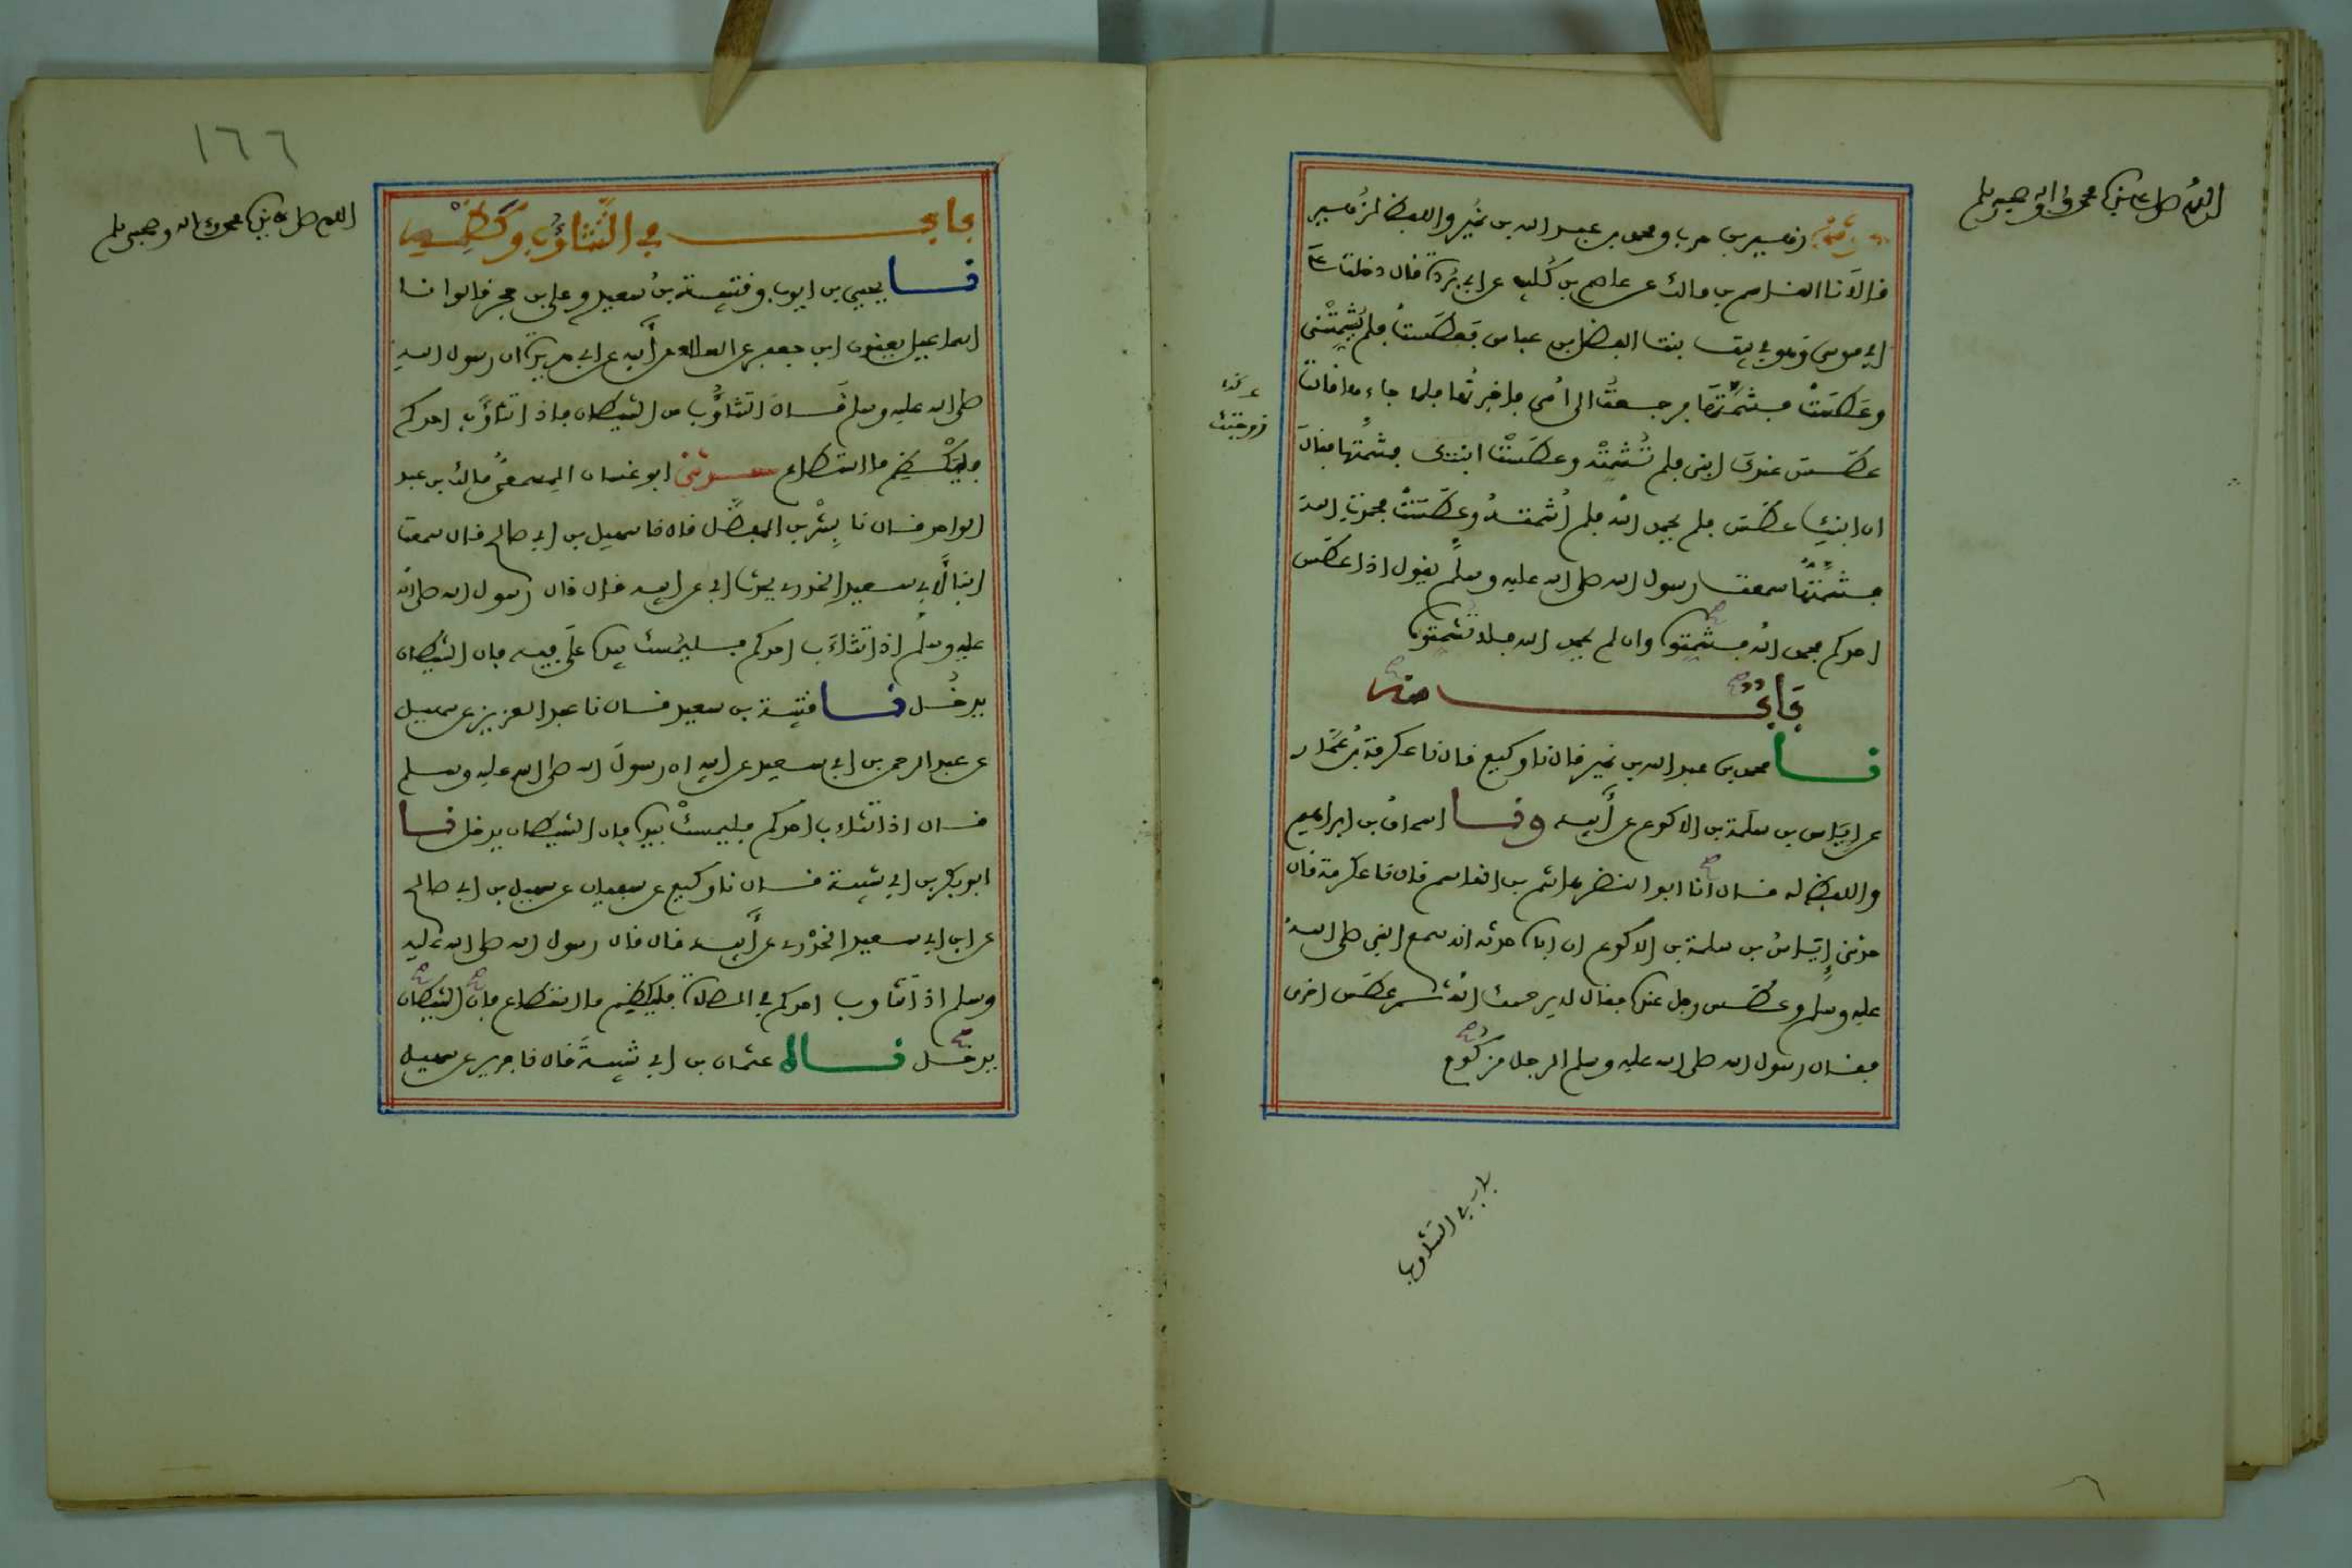 اللهم صل على سيدنا محمد وآله وصحبه وسلم
حدثني زهير بن حرب ومحمد بن عبد الله بن نمير واللفظ لزهير
قالا نا القاسم بن مالك عن عاصم بن كليب عن ابي بردة قال دخلت على
ابي موسى وهو في بيت بنت الفضل بن عباس فعطست فلم يشمتني
وعطست فشمتها فرجعت الى امي فاخبرتها فلما جاءها قالت
عطس عندك ابني فلم تشمته وعطست ابنتي فشمتها فقال
ان ابنك عطس فلم يحمد الله فلم اشمته وعطست فحمدت الله
فشمتها سمعت رسول الله صلى الله عليه وسلم يقول اذا عطس
احدكم فحمد الله فشمتوه وان لم يحمد الله فلا تشمتوه
باب منه
نا محمد بن عبد الله بن نمير قال نا وكيع قال نا عكرمة بن عمار
عن اياس بن سلمة بن الاكوع عن ابيه ونا اسحاق بن ابراهيم
واللفظ له قال انا ابو النضر هاشم بن القاسم قال نا عكرمة قال
حدثني اياس بن سلمة بن الاكوع ان اباه حدثه انه سمع النبي صلى الله
عليه وسلم وعطس رجل عنده فقال له يرحمك الله ثم عطس اخرى
فقال رسول الله صلى الله عليه وسلم الرجل مزكوم
باب في التثاوب
١٦٦
اللهم صل على سيدنا محمد وآله وصحبه وسلم
باب في التثاؤب وكظمه
نا يحيى بن ايوب وقتيبة بن سعيد وعلي بن حجر قالوا نا
اسماعيل يعنون ابن جعفر عن العلاء عن ابيه عن ابي هريرة ان رسول الله
صلى الله عليه وسلم قال التثاؤب من الشيطان فاذا تثاؤب احدكم
فليكظم ما استطاع حدثني ابو غسان المسمعي مالك بن عبد
الواحد قال نا بشر بن المفضل قال نا سهيل بن ابي صالح قال سمعت
ابنا لابي سعيد الخدري يحدث ابي عن ابيه قال قال رسول الله صلى الله
عليه وسلم اذا تثاءب احدكم فليمسك بيده على فيه فان الشيطان
يدخل نا قتيبة بن سعيد قال نا عبد العزيز عن سهيل
عن عبد الرحمن بن ابي سعيد عن ابيه ان رسول الله صلى الله عليه وسلم
قال اذا تثاءب احدكم فليمسك بيده فان الشيطان يدخل نا
ابو بكر بن ابي شيبة قال نا وكيع عن سفيان عن سهيل بن ابي صالح
عن ابن ابي سعيد الخدري عن ابيه قال قال رسول الله صلى الله عليه
وسلم اذا تثاوب احدكم في الصلاة فليكظم ما استطاع فان الشيطان
يدخل ناه عثمان بن ابي شيبة قال نا جرير عن سهيل